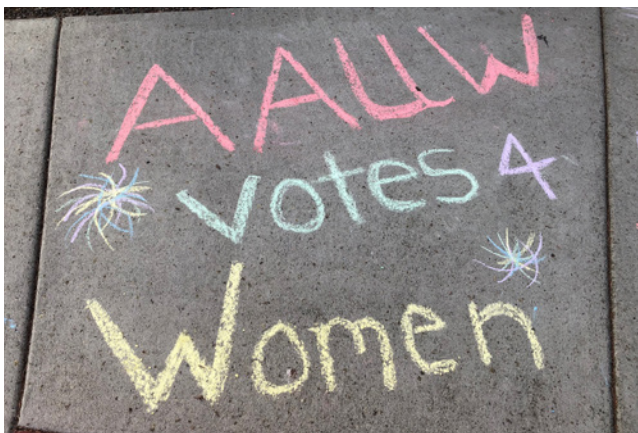 AAUW
votes 4
Women